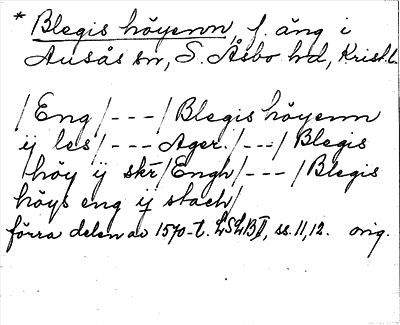 * Blegis höyenn, f. äng i
Ausås sn, S. Åsbo hd, Krist. l.
/Eng/---/Blegis höyenn
ij les/---Ager./---/Blegis
höy ij skr/Engh/---/Blegis
höys eng ij stach/
förra delen av 1570-t. LSLB II, ss. 11, 12. orig.